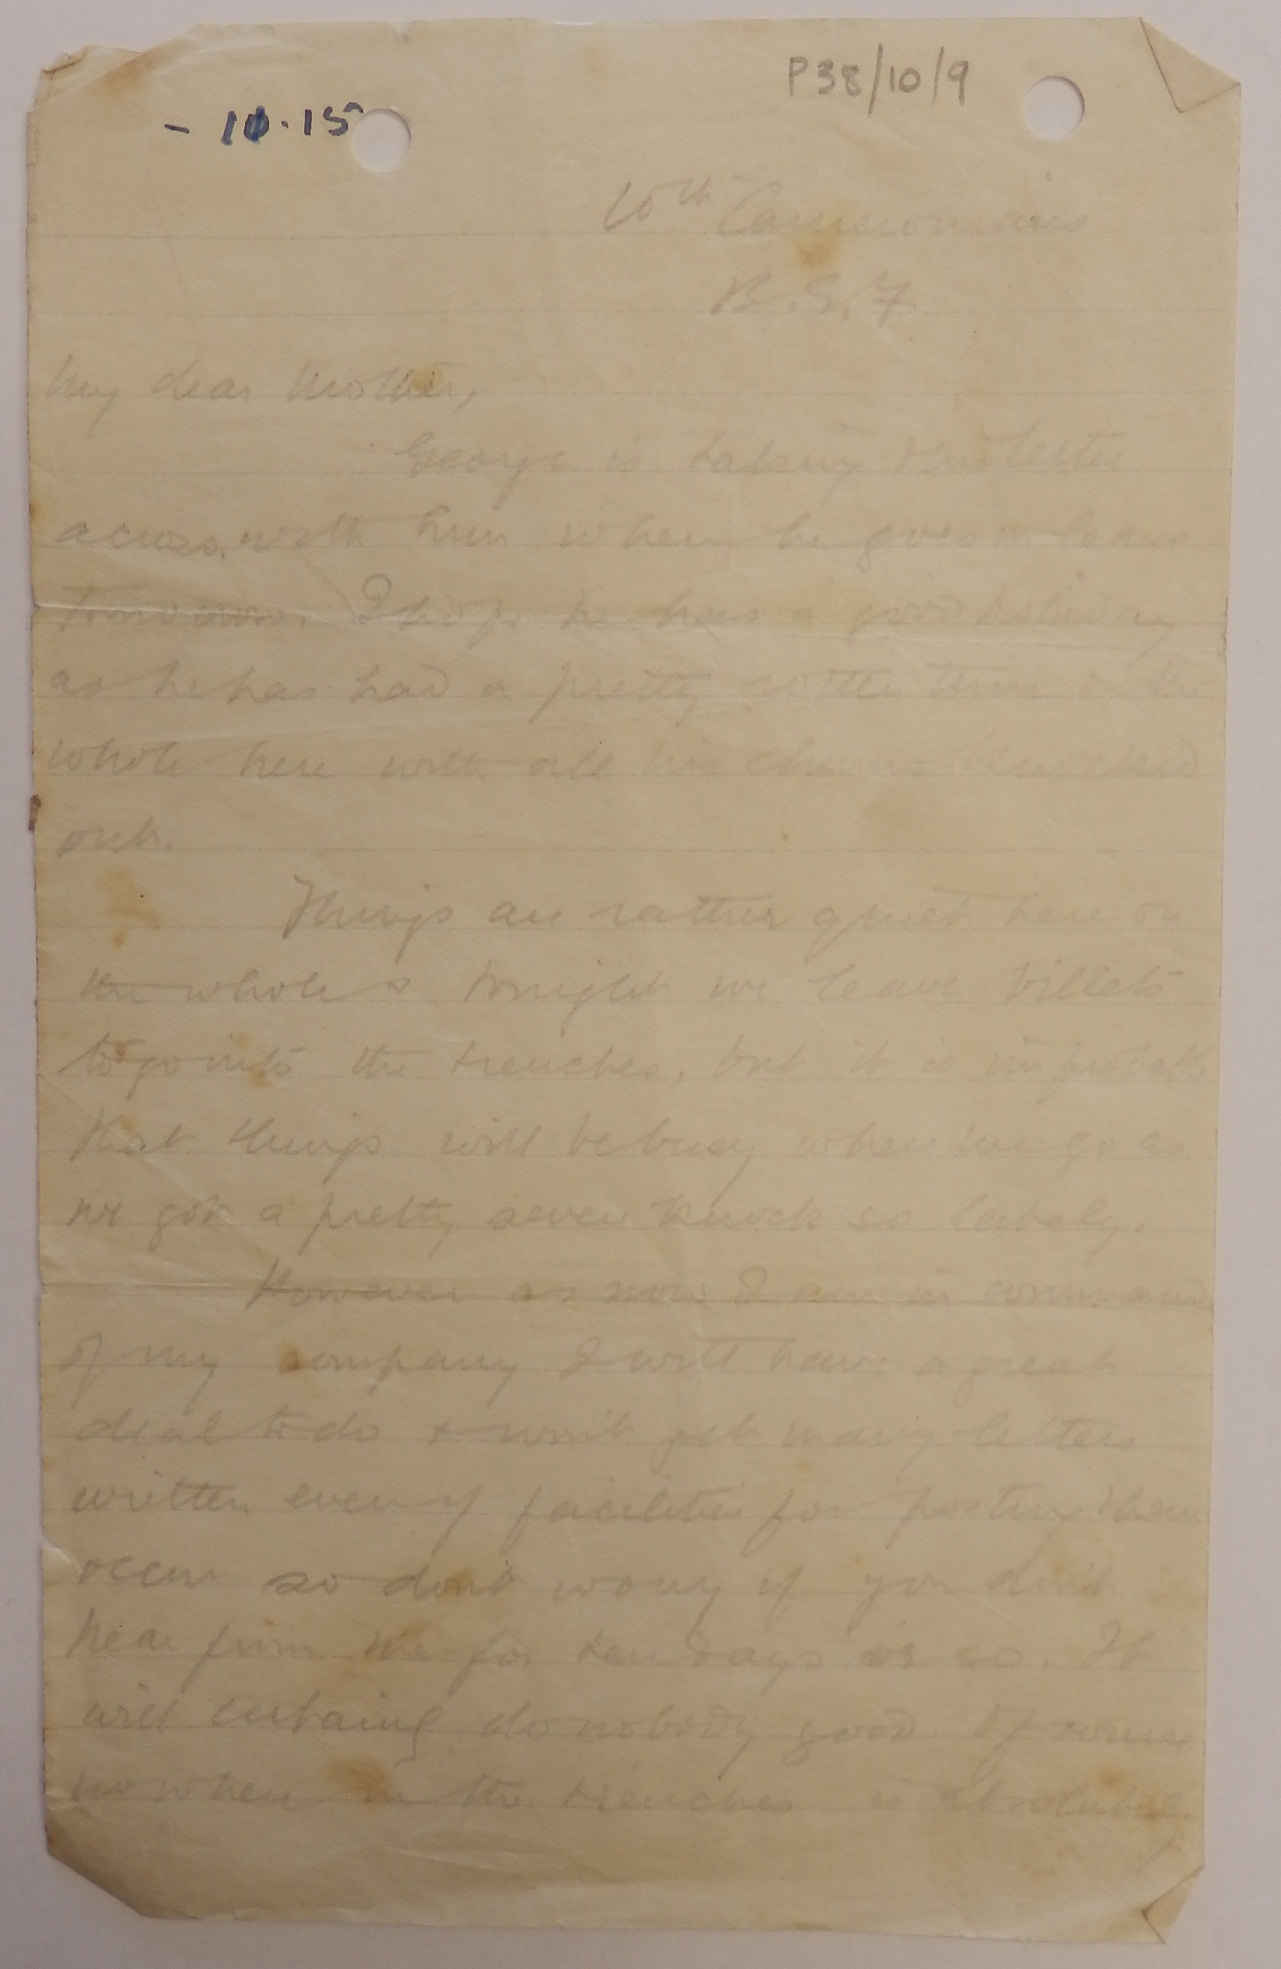 P38/10/9
- 10.15
10th Cameronians
B.E.F
My dear Mother,
George is taking this letter
across with him when he goes on leave
tomorrow. I hope he has a good holiday
as he has had a pretty rotten time on the
whole here with all his chums knocked
out.
Things are rather quiet here on
the whole & tonight we leave billets
to go into the trenches, but it is improbable
that things will be busy where we go as
we got a pretty severe knock so lately.
However as now I am in command
of my company I will have a great
deal to do & won't get many letters
written even if facilities for posting them
occur so don't worry if you don't
hear from me for ten days or so. It
will certainly do nobody good. Of course
nowhere in the trenches is absolutely